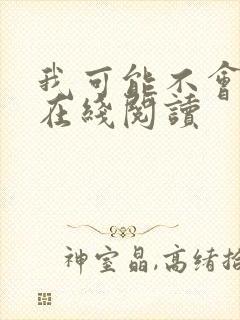 我可能不會
在綫閱讀
神室晶,高緒拾